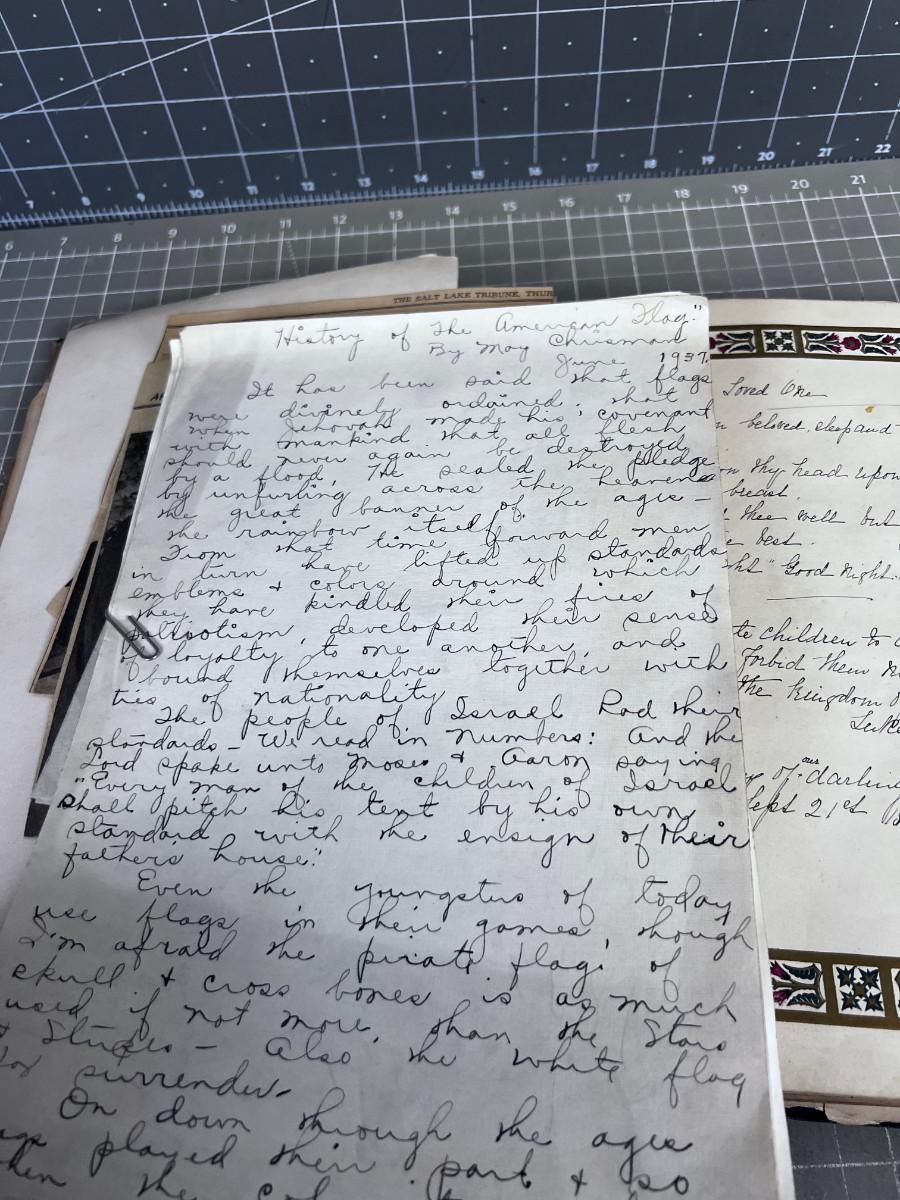 7 8 9 10 11 12 13 14 15 16 17 18 19 20 21 22
6 7 8 9 10 11 12 13 14 15 16 17 18 19 20 21
THE SALT LAKE TRIBUNE, THUR
History of The American Flag."
By May Chrisman
June 1937.
It has been said that flags
were divinely ordained, that
when Jehovah made his covenant
with mankind that all flesh
should never again be destroyed
by a flood, He sealed the pledge
by unfurling across the heavens
the great banner of the ages -
the rainbow itself
From that time forward men
in turn have lifted up standards
emblems & colors around which
they have kindled their fires of
patriotism, developed their sense
of loyalty to one another, and
bound themselves together with
ties of nationality
The people of Israel had their
standards - We read in Numbers: And the
Lord spake unto Moses & Aaron saying
"Every man of the children of Israel
shall pitch his tent by his own
standard with the ensign of their
father's house."
Even the youngsters of today
use flags in their games, though
I'm afraid the pirate flag of
skull & cross bones is as much
used if not more than the Stars
& Stripes - Also the white flag
for surrender -
On down through the ages
played their part & so
when the
Loved One
beloved, sleep and
thy head upon
breast.
thee well but
best.
Good Night.
children to
Forbid them
the kingdom
Luke
of our darling
Sept 21st